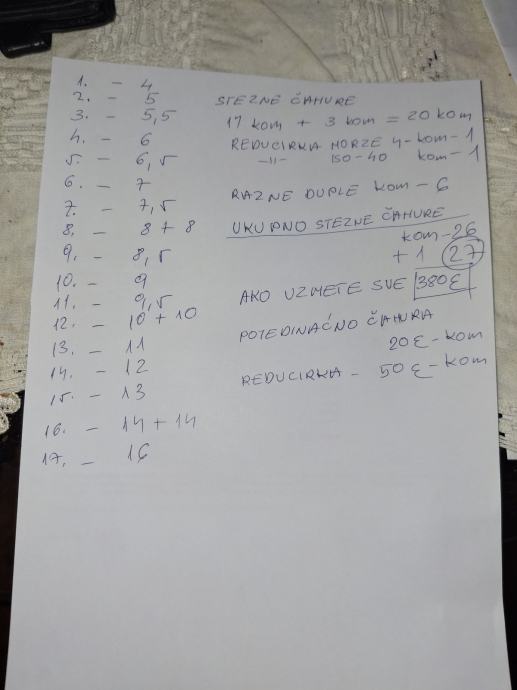 1. - 4
2. - 5
3. - 5,5
4. - 6
5. - 6,5
6. - 7
7. - 7,5
8. - 8 + 8
9. - 8,5
10. - 9
11. - 9,5
12. - 10 + 10
13. - 11
14. - 12
15. - 13
16. - 14 + 14
17. - 16
STEZNE ČAHURE
17 kom + 3 kom = 20 kom
REDUCIRKA MORZE 4 - kom - 1
-11- ISO - 40 kom - 1
RAZNE DUPLE kom - 6
UKUPNO STEZNE ČAHURE
kom - 26
+ 1 27
AKO UZMETE SVE 380€
POJEDINAĆNO ČAHURA
20€ - kom
REDUCIRKA - 50€ - kom